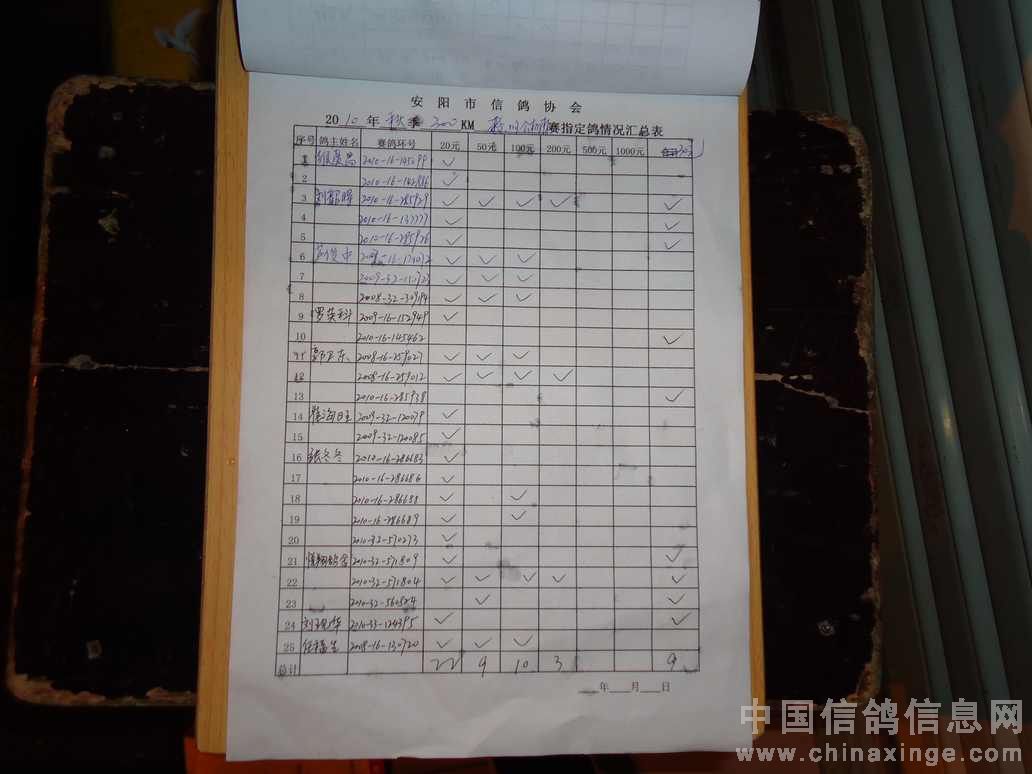 安阳市信鸽协会
2010年秋季300KM 赛指定鸽情况汇总表
序号 鸽主姓名 赛鸽环号 20元 50元 100元 200元 500元 1000元 30元
1 2010-16-145099 ✓
2 2010-16-142886 ✓
3 2010-16-285929 ✓ ✓ ✓ ✓ ✓
4 2010-16-137777 ✓ ✓
5 2010-16-285926 ✓ ✓
6 ✓ ✓ ✓
7 ✓ ✓ ✓
8 ✓ ✓ ✓
9 罗英科 2009-16-152949 ✓
10 2010-16-145462 ✓
11 2008-16-259027 ✓ ✓ ✓
12 2008-16-259012 ✓ ✓ ✓ ✓
13 2010-16-285938 ✓
14 2009-32-120079 ✓
15 2009-32-120085 ✓
16 张冬冬 2010-16-286683 ✓
17 2010-16-286686 ✓
18 2010-16-286688 ✓ ✓
19 2010-16-286689 ✓ ✓
20 2010-32-570273 ✓
21 2010-32-571809 ✓ ✓
22 2010-32-571804 ✓ ✓ ✓ ✓ ✓
23 2010-32-560524 ✓ ✓
24 2010-33-124395 ✓ ✓
25 2008-16-130720 ✓ ✓ ✓
总计 22 9 10 3 9
年 月 日
中国信鸽信息网
www.chinaxinge.com